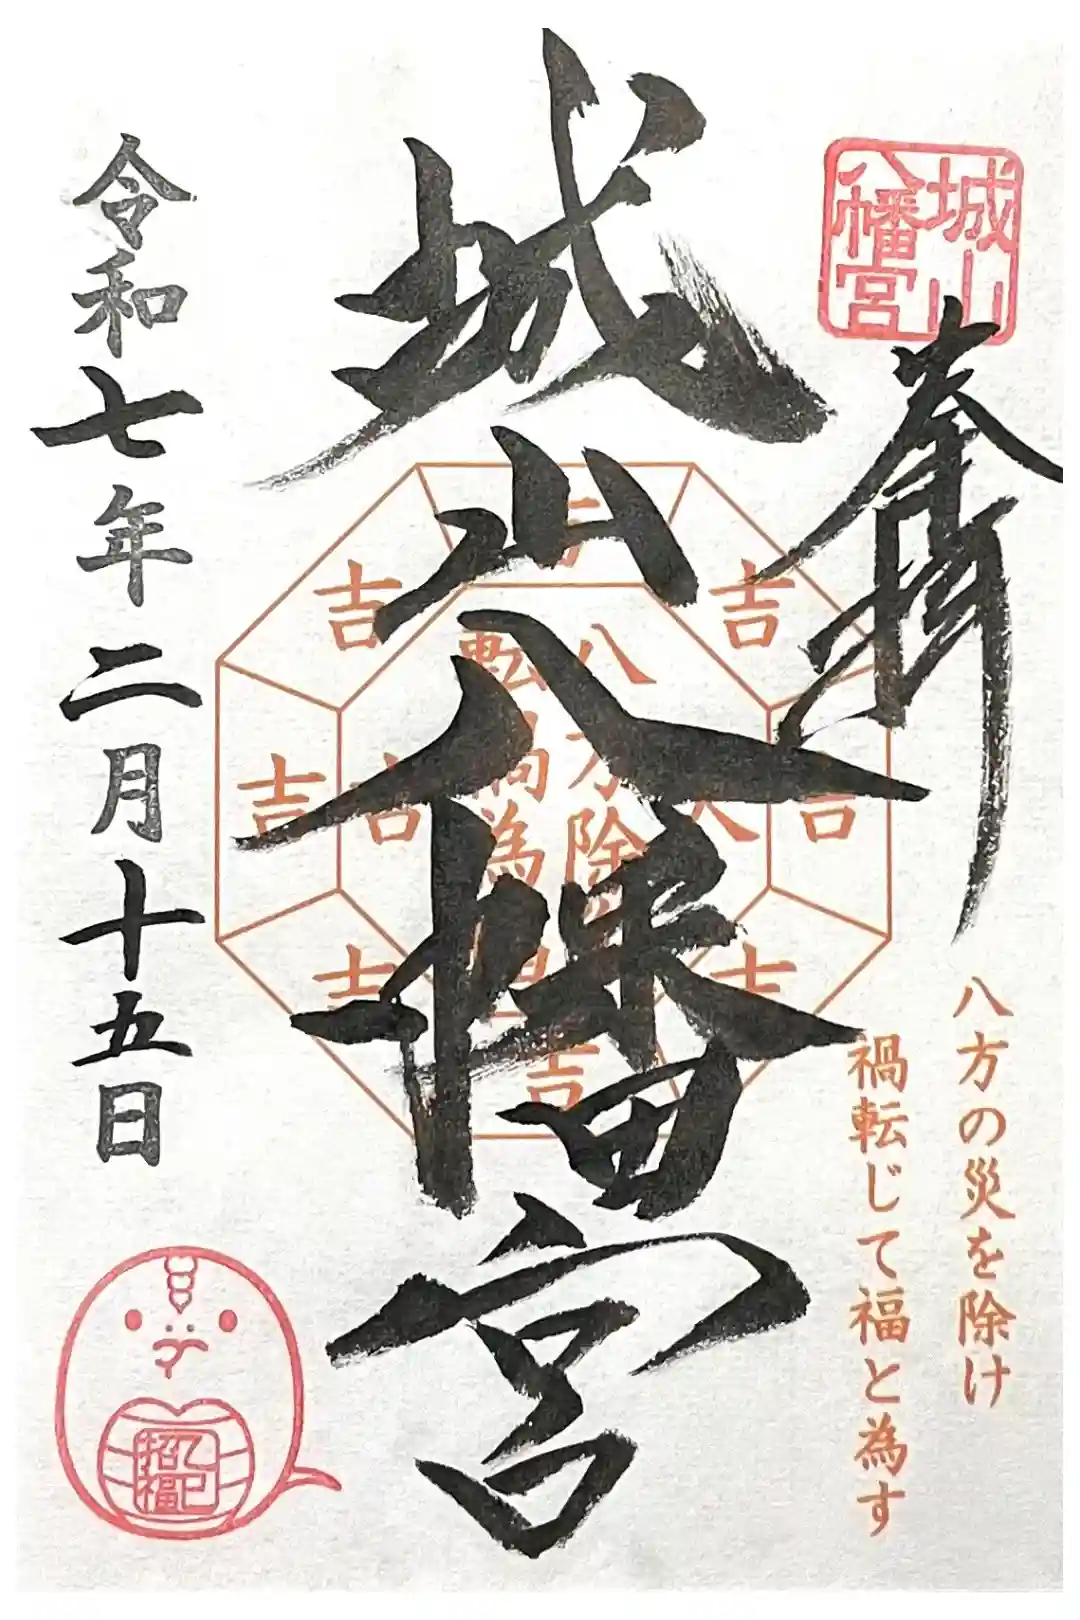 城山
八幡宮
奉拝
八方の災を除け
禍転じて福と為す
城山八幡宮
八方除
転禍為
吉
吉
吉
吉
吉
吉
吉
吉
令和七年二月十五日
乙巳
招福